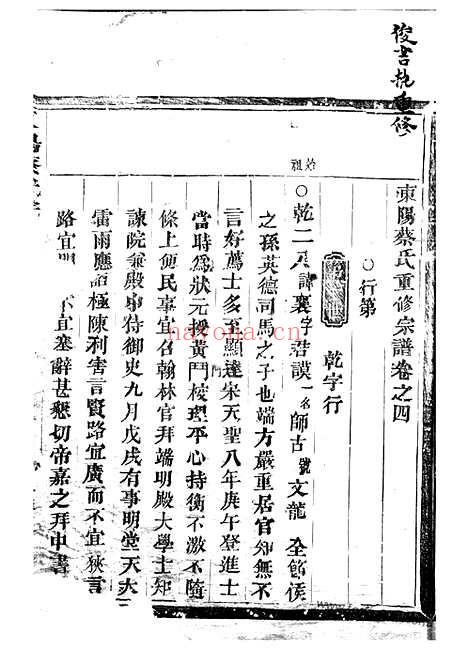 俊吉执重修
東陽蔡氏重修宗譜卷之四
○行第
乾字行
始祖
○乾二 諱襄字君謨一名師古號文龍 全節侯
之孫英德司馬之子也端方嚴重居官知無不
言好薦士多至顯達宋天聖八年庚午登進士
當時為狀元授黃門校理平心持衡不激不隨
條上便民事宜召翰林官拜端明殿大學士知
諫院兼殿中侍御史九月戊戌有事明堂天大
雷雨應詔極陳利害言賢路宜廣而不宜狹言
路宜 不宜塞辭甚懇切帝嘉之拜中書
haxona.cn